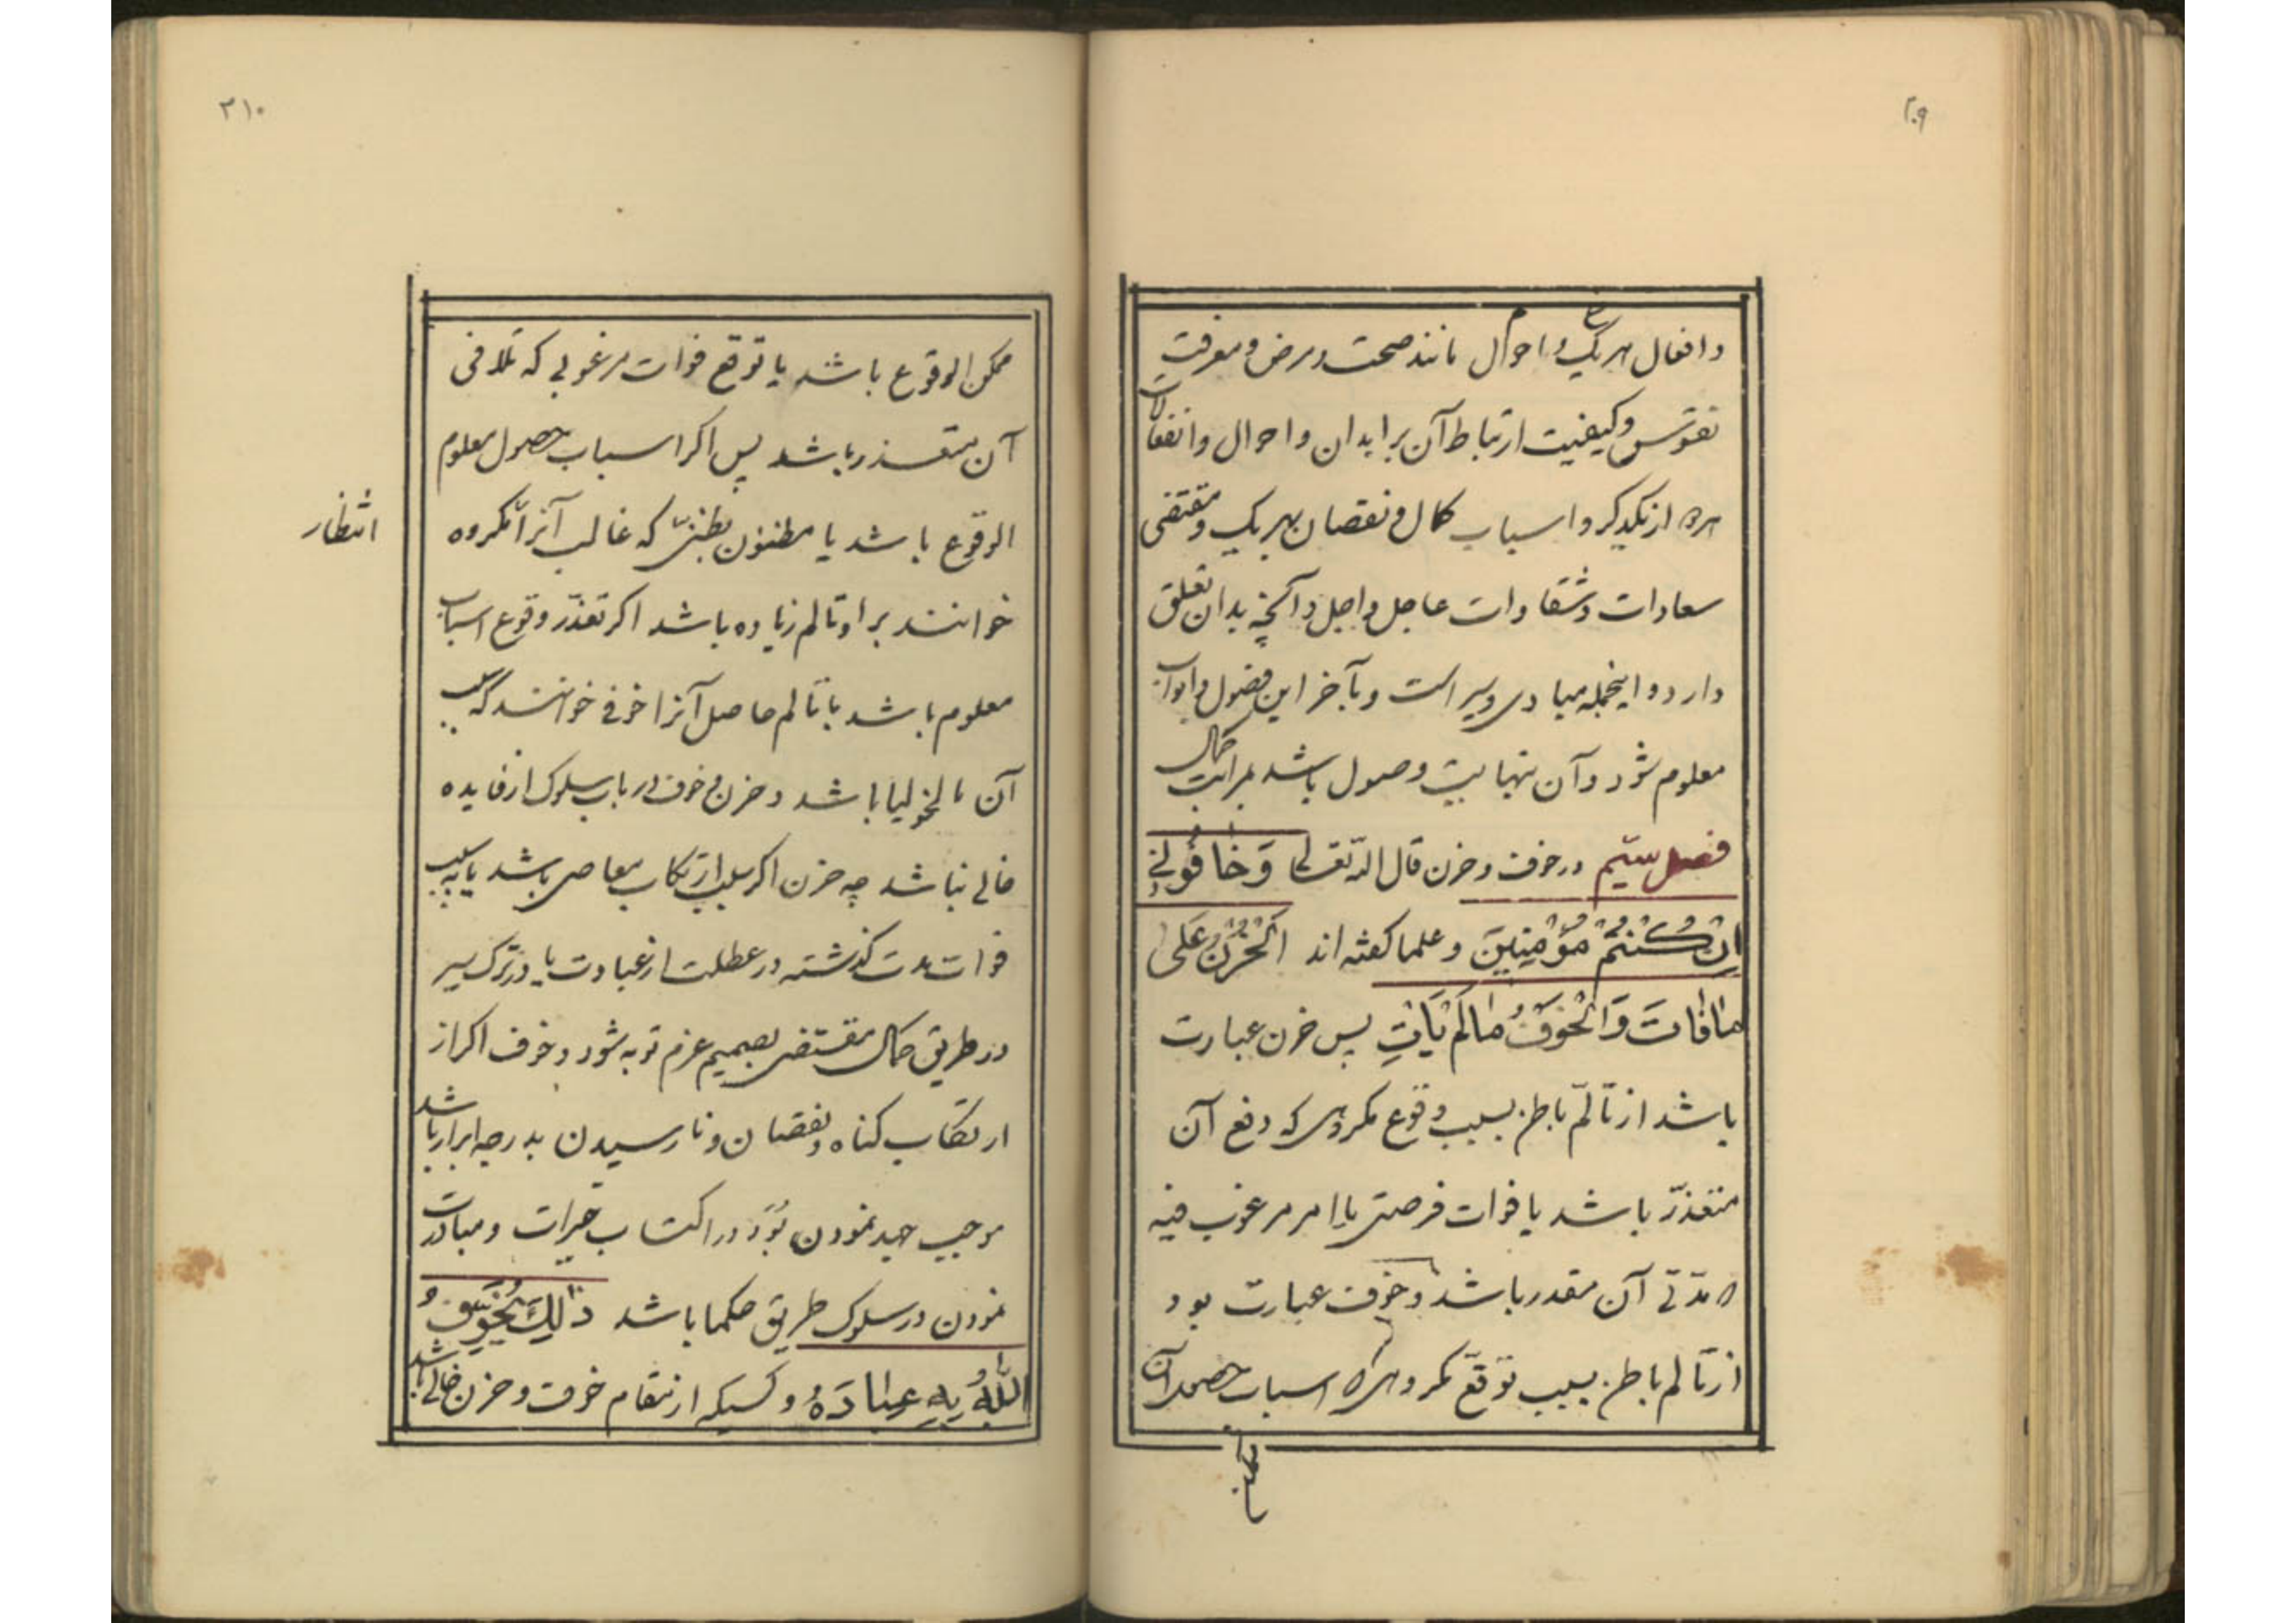 ۲۰۹
و افعال هر یک و احوال مانند صحت و مرض و معرفت
نفوس و کیفیت ارتباط آن بر ابدان و احوال و انفعالات
هر از یکدیگر و اسباب کمال و نقصان بهر یک و مقتضی
سعادات و شقاوات عاجل و اجل و آنچه بدان تعلق
دارد و اینجمله مبادی سیر است و بآخر این فصول و ابواب
معلوم شود و آن نهایت وصول باشد بمراتب کمال
فصل سیّم در خوف و حزن قال الله تعالی وَ خافُونی
اِن کُنتُم مُؤمِنینَ و علما کفته اند اَلحُزنُ عَلی
مافاتَ وَ الخَوفُ مالَم یَاتِ پس حزن عبارت
باشد از تألّم باطن بسبب وقوع مکروهی که دفع آن
متعذّر باشد یا فوات فرصتی یا امر مرغوب فیه
آن مقدر باشد و خوف عبارت بود
از تالم باطن بسبب توقّع مکروهی که اسباب حصول آن
ممکن
۲۱۰
ممکن الوقوع باشد یا توقع فوات مرغوبی که تلافی
آن متعذر باشد پس اکر اسباب حصول معلوم
الوقوع باشد یا مظنون بظنّی که غالب آنرا مکروه
انتظار
خوانند بر او تالم زیاده باشد اکر تعذّر وقوع اسباب
معلوم باشد با تالم حاصل آنرا خوفی خوانند که سبب
آن مالخولیا باشد و حزن و خوف در باب سلوک از فایده
خالی نباشد چه حزن اکر بسبب ارتکاب معاصی باشد یا بسبب
فوات مدت کذشته در عطلت از عبادت یا در ترک سیر
در طریق کمال مقتضی تصمیم عزم توبه شود و خوف اکر از
ارتکاب کناه و نقصان و نارسیدن بدرجه ابرار باشد
موجب جهد نمودن بُوَد در اکتساب خیرات و مبادرت
نمودن در سلوک طریق حکما باشد ذلِکَ یُخَوِّفُ
اللّهُ بِهِ عِبادَهُ و کسیکه از نمقام خوف و حزن خالی باشد